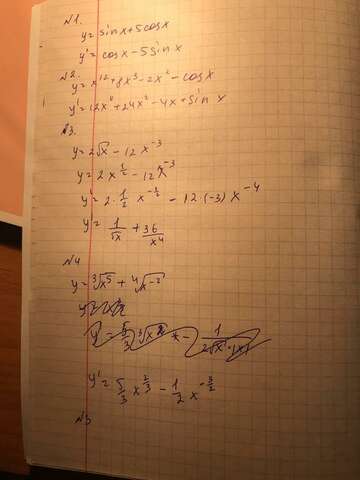 №1.
y = sin x + 5 cos x
y' = cos x - 5 sin x
№2.
y = x^12 + 8x^3 - 2x^2 - cos x
y' = 12x^11 + 24x^2 - 4x + sin x
№3.
y = 2√x - 12x^-3
y = 2x^(1/2) - 12x^-3
y' = 2 · 1/2 x^(-1/2) - 12 · (-3) x^-4
y' = 1/√x + 36/x^4
№4
y = ∛(x^5) + ∜(x^-2)
y' = 5/3 x^(2/3) - 1/2 x^(-3/2)